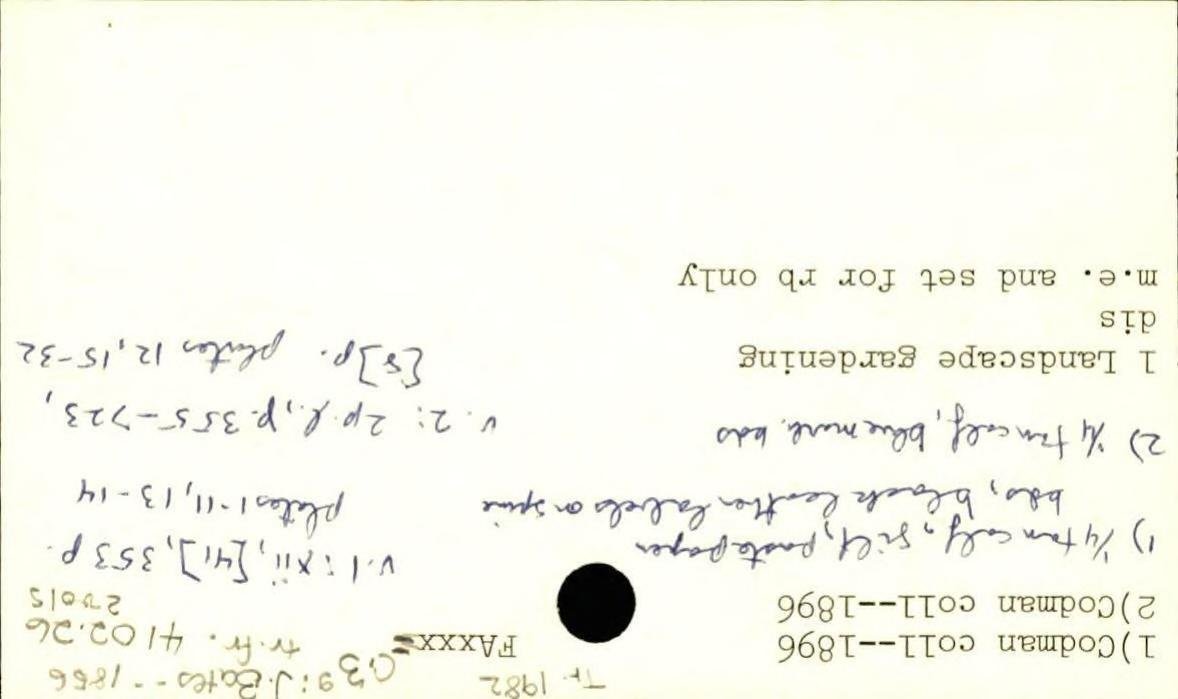 1)Codman coll--1896
2)Codman coll--1896
FAxxx
Tr. 1982
C39: J. Bates -- 1866
tr. fr. 4102.26
1) ¼ tan calf, gilt, paste paper
bds, black leather labels on spine
v.1: xii, [41], 353 p.
plates 1-11, 13-14
2) ¼ tan calf, blue marb. bds
v. 2: 2 p. l., p. 355-723,
[5] p. plates 12, 15-32
1 Landscape gardening
dis
m.e. and set for rb only